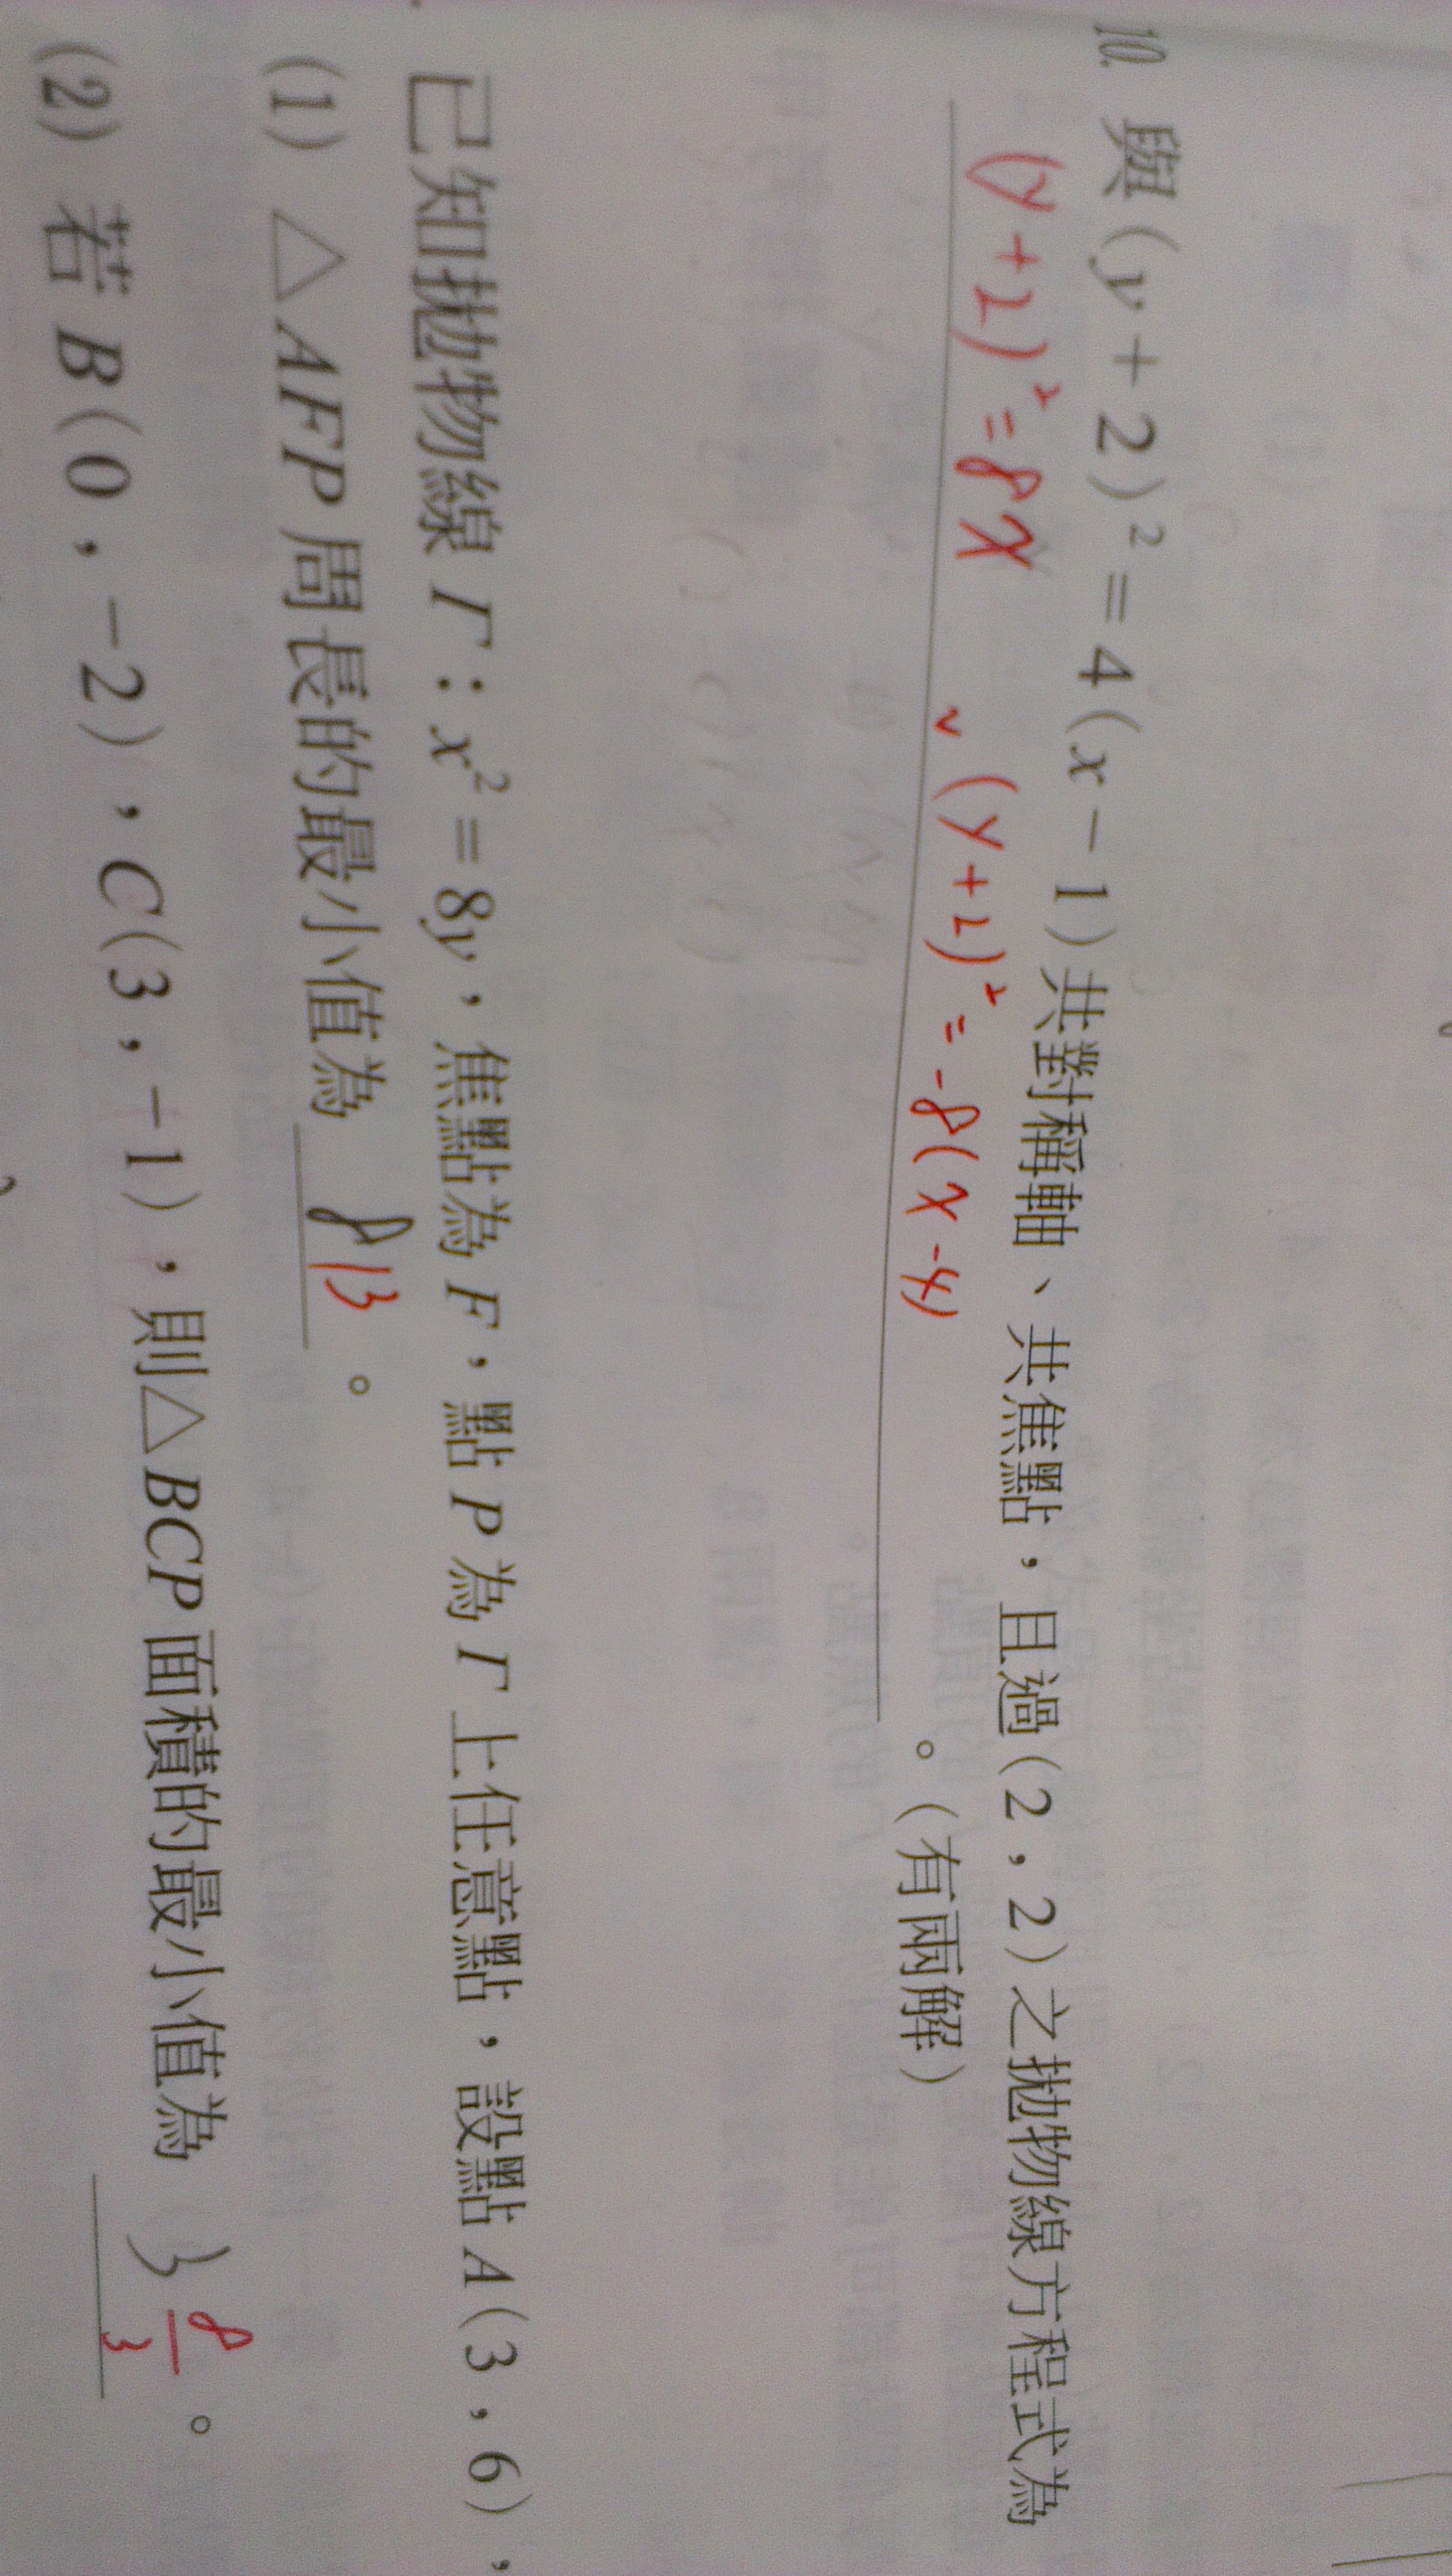 10. 與(y+2)²=4(x-1)共對稱軸、共焦點，且過(2,2)之拋物線方程式為
(y+2)²=8x 、(y+2)²=-8(x-4) 。(有兩解)
已知拋物線Γ：x²=8y，焦點為F，點P為Γ上任意點，設點A(3,6)，
(1) △AFP周長的最小值為 8 13 。
(2) 若B(0,-2)，C(3,-1)，則△BCP面積的最小值為 3 8/3 。